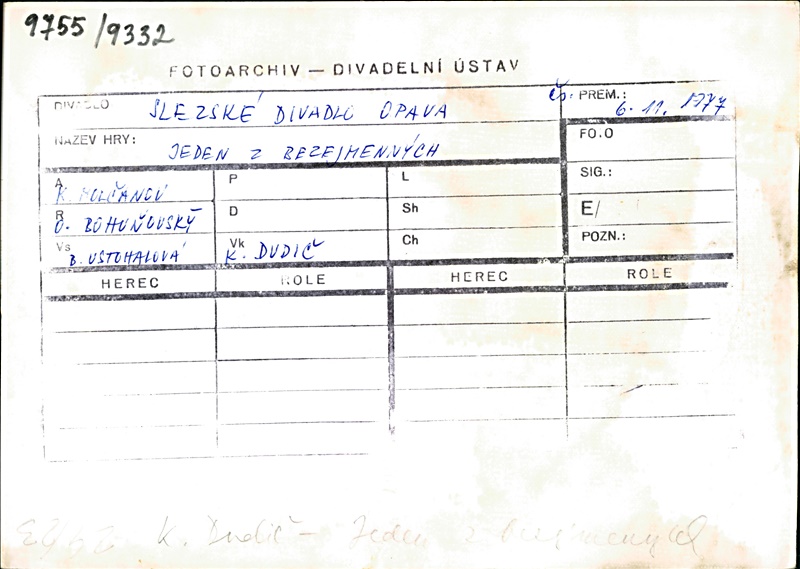 9755/9332
FOTOARCHIV — DIVADELNÍ ÚSTAV
DIVADLO SLEZSKÉ DIVADLO OPAVA
čs. PREM.: 6. 11. 1977
NÁZEV HRY: JEDEN Z BEZEJMENNÝCH
FOTO
A K. MOLČANOV P L SIG.:
R O. BOHUŇOVSKÝ D Sh E/
Vs B. USTOHALOVÁ Vk K. DUDIČ Ch POZN.:
HEREC ROLE HEREC ROLE
K. Dudič - Jeden z bezejmenných